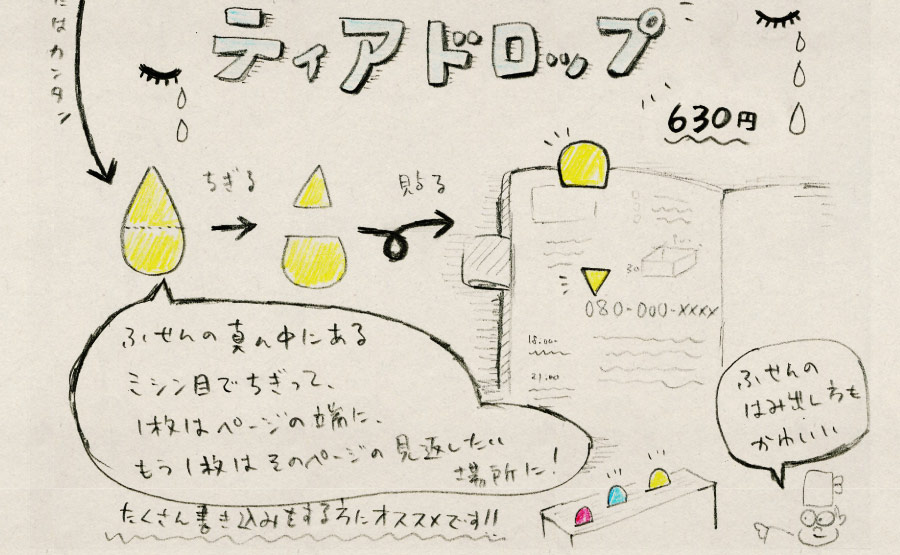 はカンタン
ティアドロップ
630円
ちぎる
貼る
30
080-000-xxxx
18.00
21.00
ふせんの真ん中にある
ミシン目でちぎって、
1枚はページの端に、
もう1枚はそのページの見返したい
場所に!
たくさん書き込みをする方にオススメです!!
ふせんの
はみ出し方も
かわいい